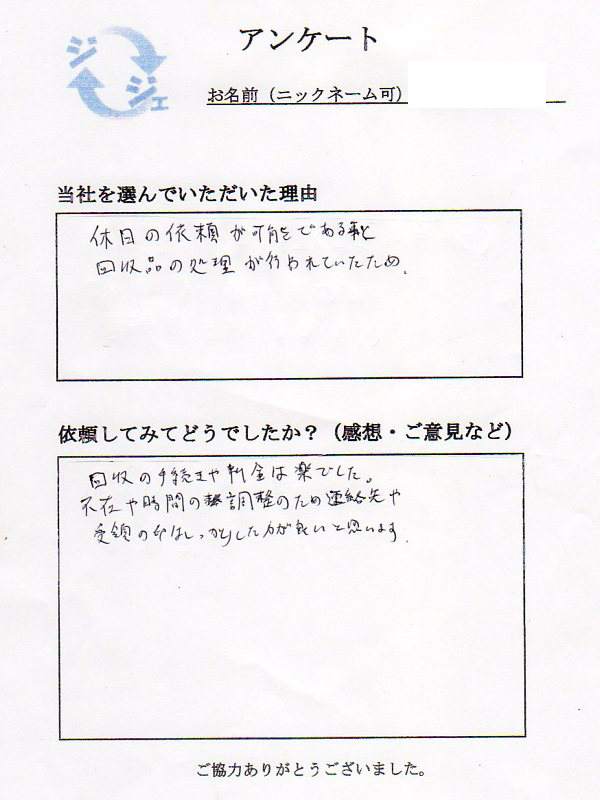 アンケート
ジ
ジェ
お名前（ニックネーム可）
当社を選んでいただいた理由
休日の依頼が可能である事と
回収品の処理が行われていたため.
依頼してみてどうでしたか？（感想・ご意見など）
回収の手続きや料金は楽でした。
不在や時間の調整のため連絡先や
受領の印はしっかりした方が良いと思います.
ご協力ありがとうございました。